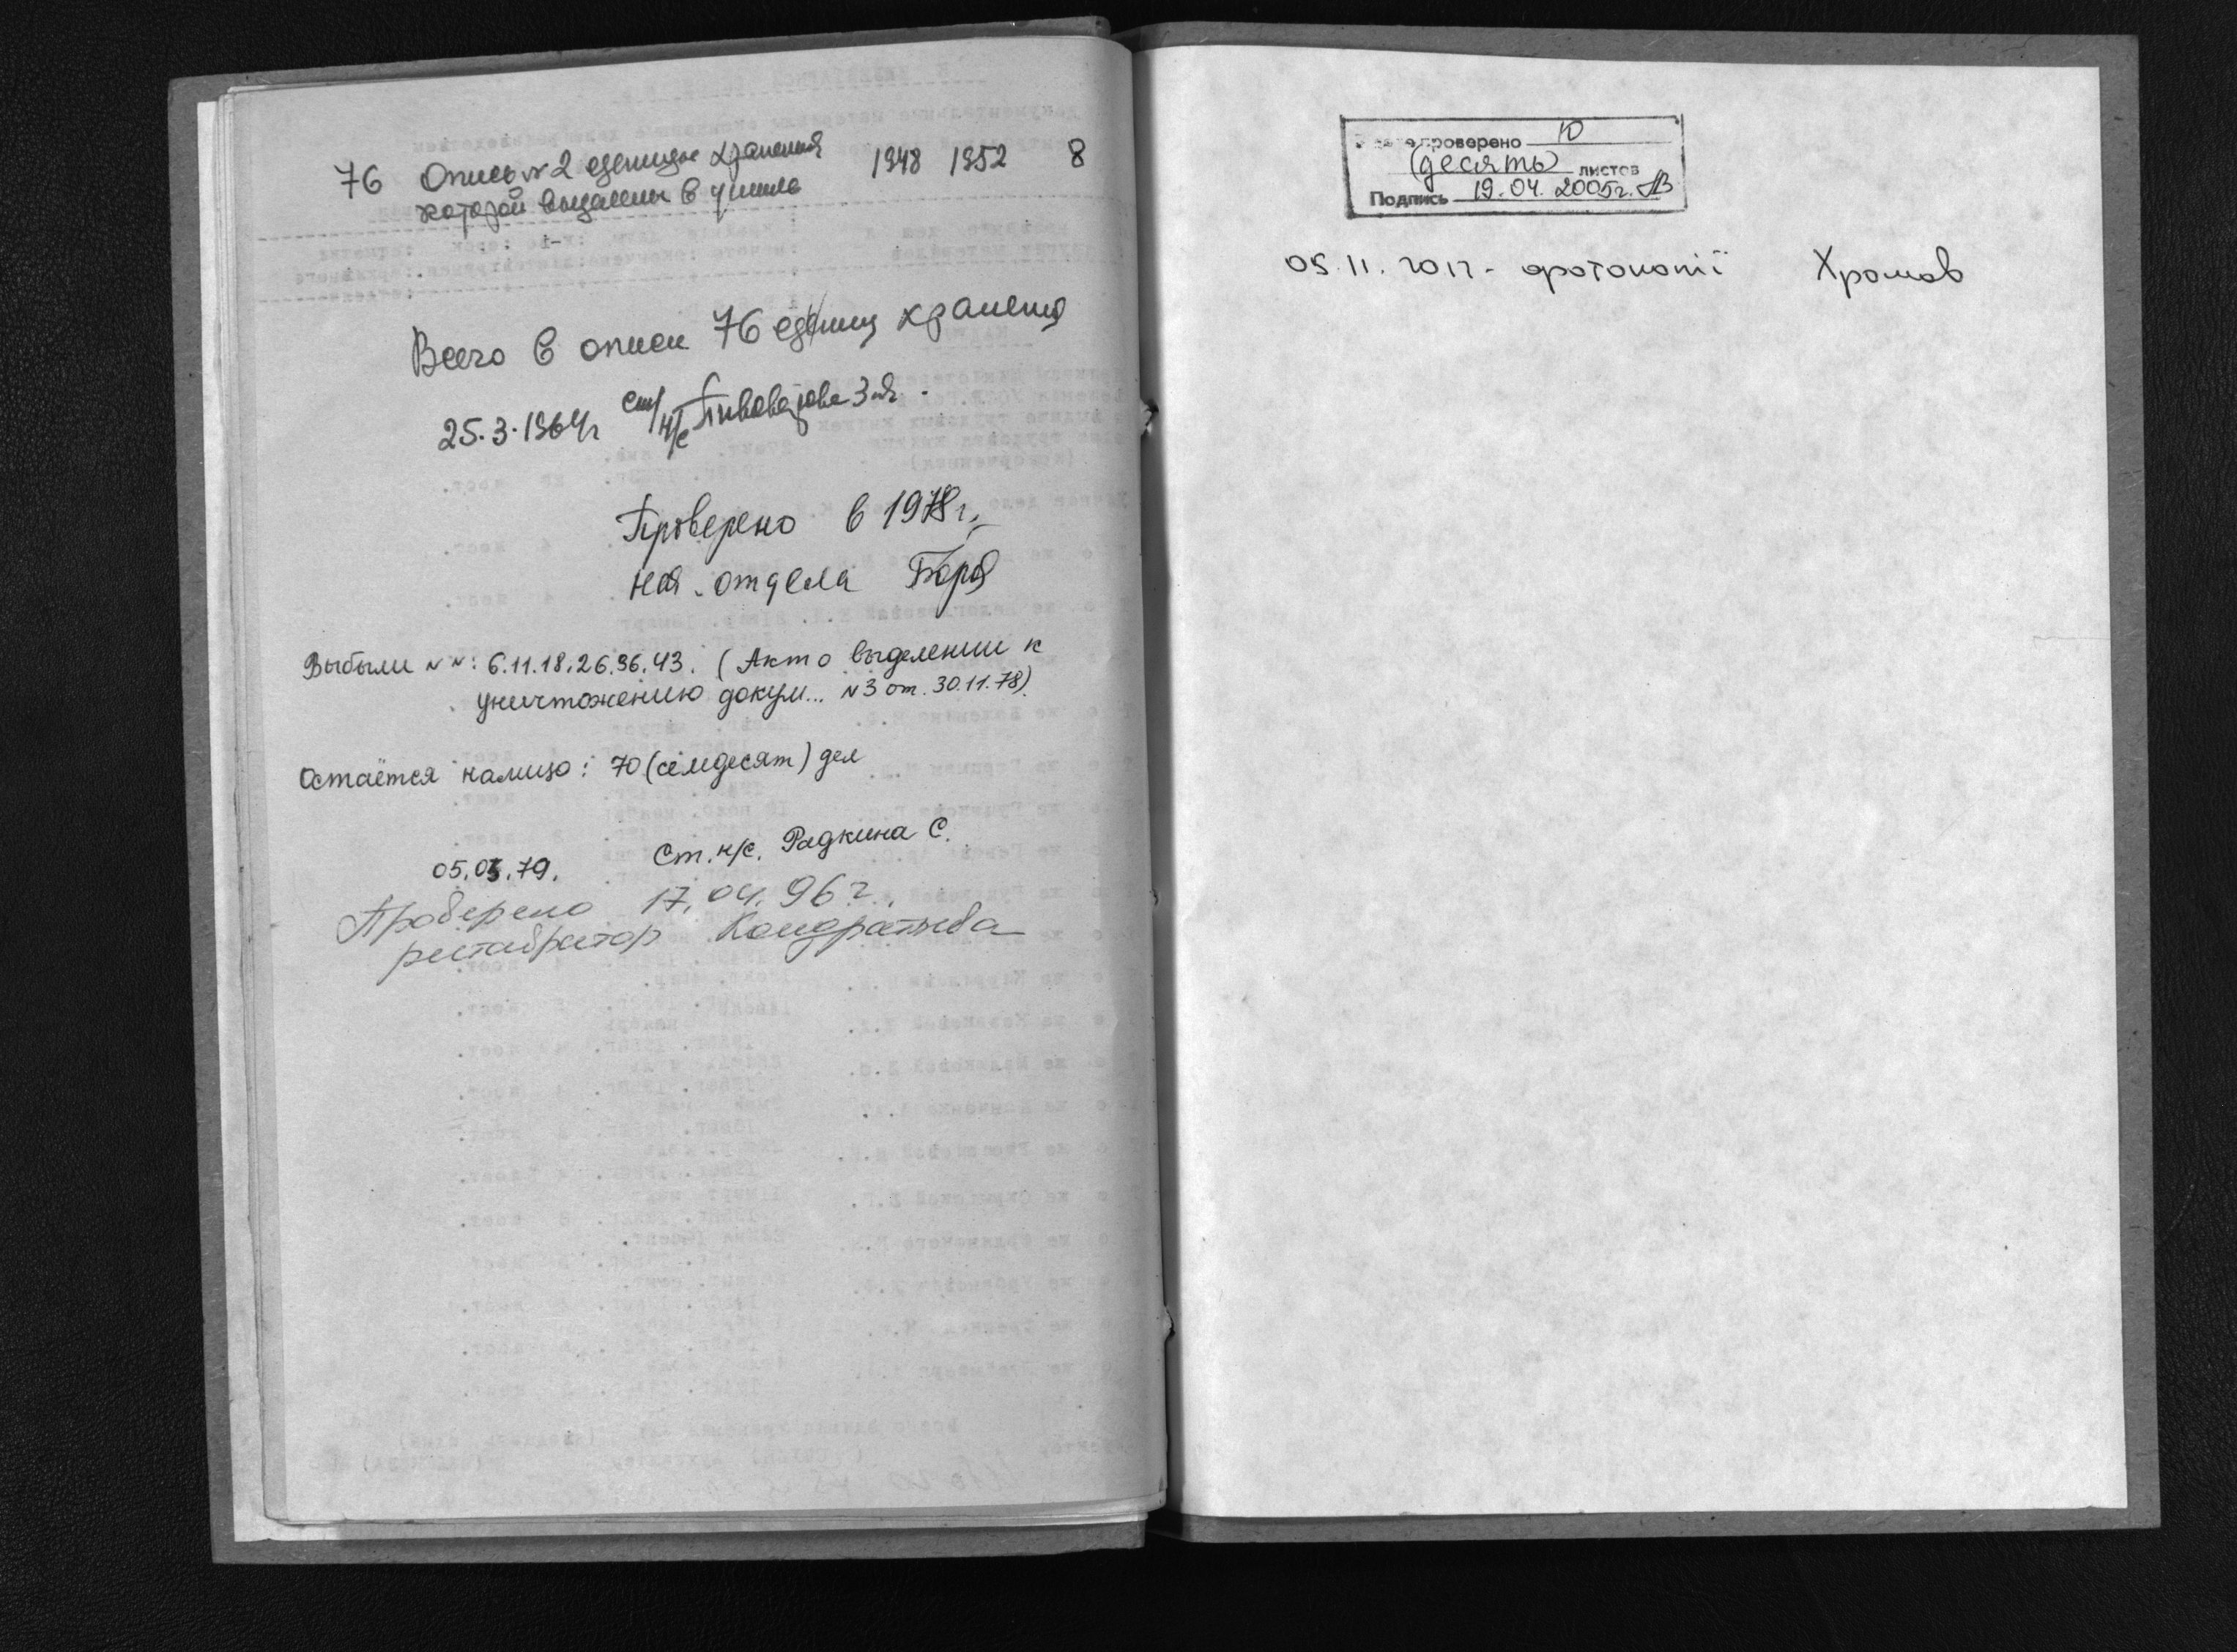 76 Опись №2 единицы хранения 1948 1952 8
которой выделены в утиль
Всего в описи 76 единиц хранения
25.3.1964г ст/н/с Пивоварова З.Я.
Проверено в 1978г.
нач. отдела
Выбыли №№: 6.11.18.26.36.43. (Акт о выделении к
уничтожению докум... №3 от. 30.11.78).
Остаётся налицо: 70 (семдесят) дел
05.03.79. Ст. н/с. Радкина С.
Проверено 17.04.96г.
реставратор Кондратьева
проверено 10
(десять) листов
Подпись 19.04.2005г.
05.11.2012 - фотокопії Хромов